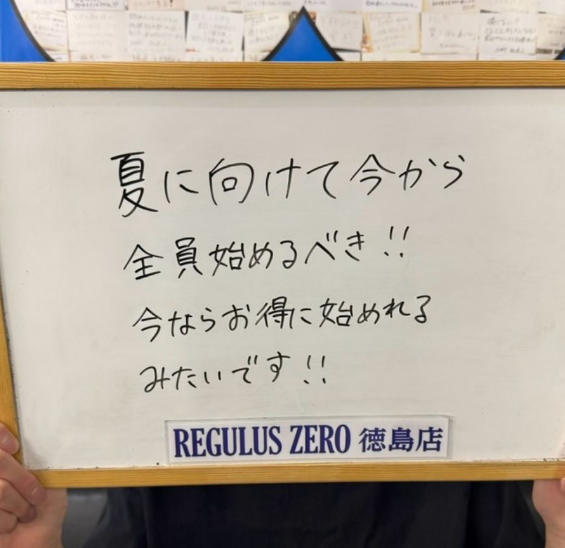 夏に向けて今から
全員始めるべき!!
今ならお得に始めれる
みたいです!!
REGULUS ZERO 徳島店